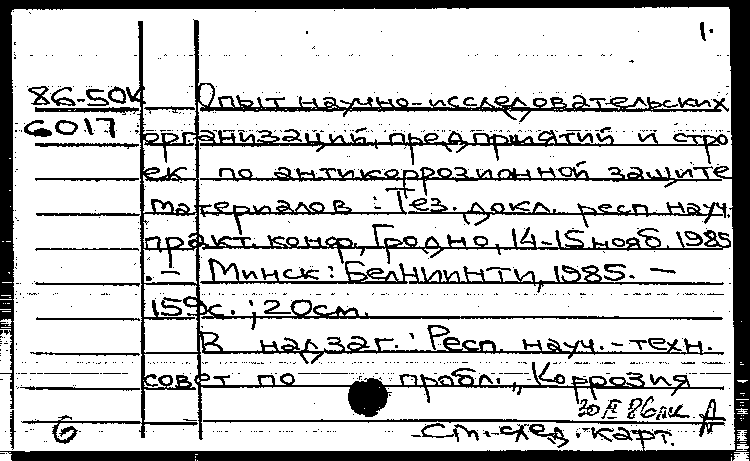 1.
86-50К Опыт научно-исследовательских
6017 организаций, предприятий и стро
ек по антикоррозионной защите
материалов : Тез. докл. респ. науч.-
практ. конф., Гродно, 14-15 нояб. 1985
. - Минск : БелНИИНТИ, 1985. -
159с. ; 20см.
В надзаг. : Респ. науч.-техн.
совет по пробл. "Коррозия
86
6 См. след. карт.